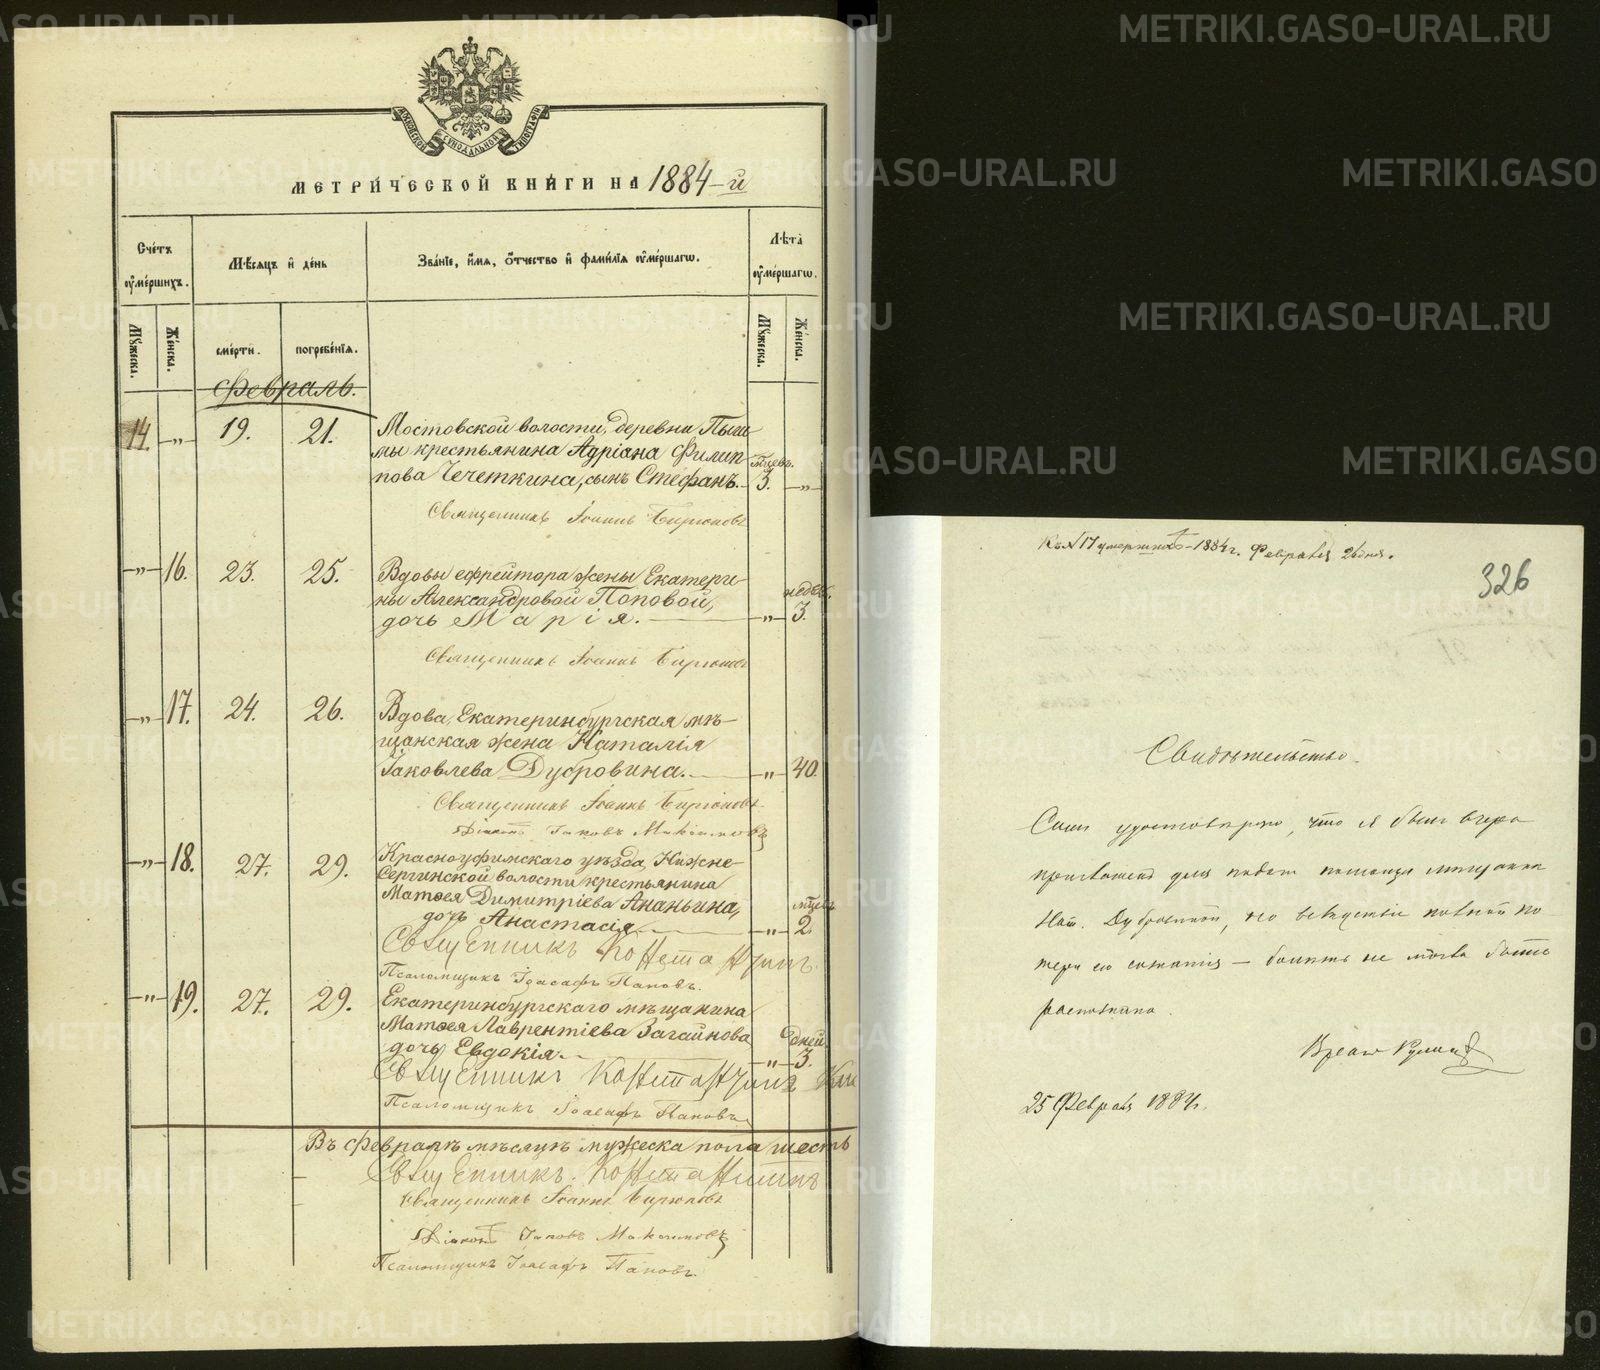 METRIKI.GASO-URAL.RU
МОСКОВСКОЙ СѴНОДАЛЬНОЙ ТИПОГРАФІИ
МЕТРИЧЕСКОЙ КНИГИ НА 1884-й
Счетъ ѹмершихъ.
Мѣсяцъ и день
Званіе, имя, отчество и фамилія ѹмершагѡ.
Лѣта ѹмершагѡ.
Мѹжеска.
Женска.
смерти.
погребенія.
Мѹжеска.
Женска.
Февраль.
14. -„- 19. 21. Мостовской волости, деревни Пыш-
мы крестьянина Адріана Филип- мцевъ.
пова Чечеткина, сынъ Стефанъ. 3. -„-
Священникъ Іоаннъ Бирюковъ
-„- 16. 23. 25. Вдовы ефрейтора жены Екатери-
ны Александровой Поповой, недѣл.
дочь Марія. -„- 3.
Священникъ Іоаннъ Бирюковъ
-„- 17. 24. 26. Вдова, Екатеринбургская мѣ-
щанская жена Наталія
Іаковлева Дубровина. -„- 40.
Священникъ Іоаннъ Бирюковъ
Діаконъ Іаковъ Максимовъ
-„- 18. 27. 29. Красноуфимскаго уѣзда, Нижне-
Сергинской волости крестьянина
Матѳея Димитріева Ананьина, мцевъ
дочь Анастасія. -„- 2.
Священникъ Константинъ
Псаломщикъ Іоасафъ Поповъ.
-„- 19. 27. 29. Екатеринбургскаго мѣщанина
Матѳея Лаврентіева Загайнова дней
дочь Евдокія. -„- 3.
Священникъ Константинъ
Псаломщикъ Іоасафъ Поповъ
Въ Февралѣ мѣсяцѣ мужеска пола шесть
Священникъ Константинъ
Священникъ Іоаннъ Бирюковъ
Діаконъ Іаковъ Максимовъ
Псаломщикъ Іоасафъ Поповъ.
Къ № 17 умершихъ - 1884 г. Февраля 26 дня.
326
Свидѣтельство.
Симъ удостовѣряю, что я былъ вчера
приглашенъ для подачи помощи мѣщанки
Нат. Дубровиной, но вслѣдствіе полной по-
тери ею сознанія - болѣзнь не могла быть
распознана.
Врачъ
25 Февраля 1884 г.